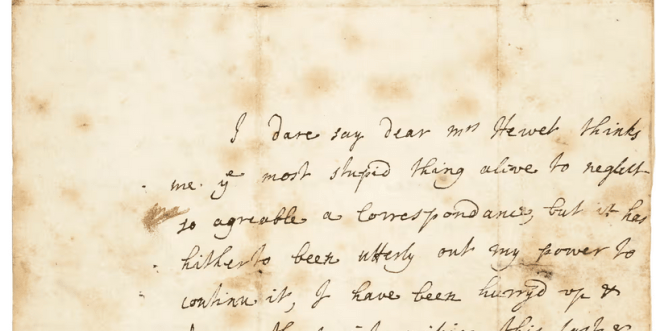 I dare say dear mrs Hewet thinks
me ye most stupid thing alive to neglect
so agreable a Correspondance, but it has
hitherto been utterly out my power to
continu it, I have been hurry'd up &